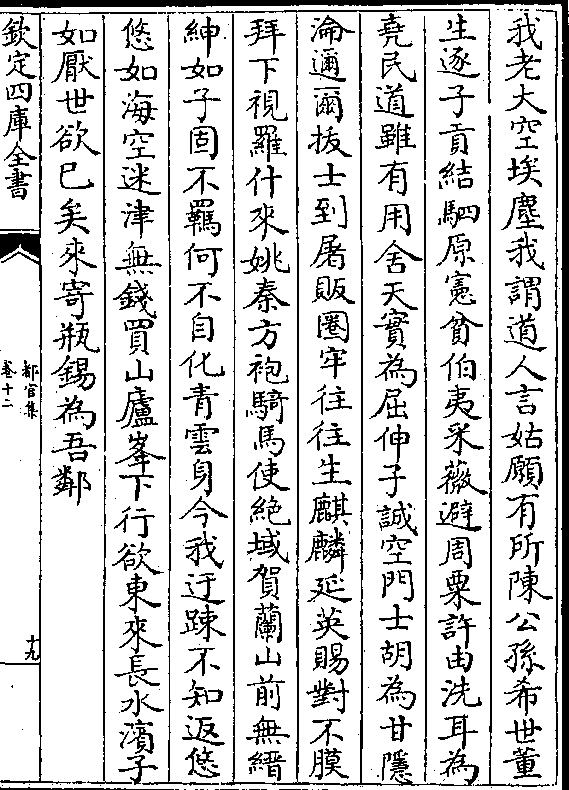 我老大空埃塵我謂道人言姑願有所陳公孫希世董
生逐子貢結駟原憲貧伯夷采薇避周粟許由洗耳為
堯民道雖有用舍天實為屈伸子誠空門士胡為甘隱
淪邇爾拔士到屠販圈牢往往生麒麟延英賜對不膜
拜下視羅什來姚秦方袍騎馬使絶域賀蘭山前無縉
紳如子固不羈何不自化青雲身今我迂踈不知返悠
悠如海空迷津無錢買山廬峯下行欲東來長水濱子
如厭世欲已矣來寄瓶錫為吾鄰
欽定四庫全書
都官集
卷十二
十九